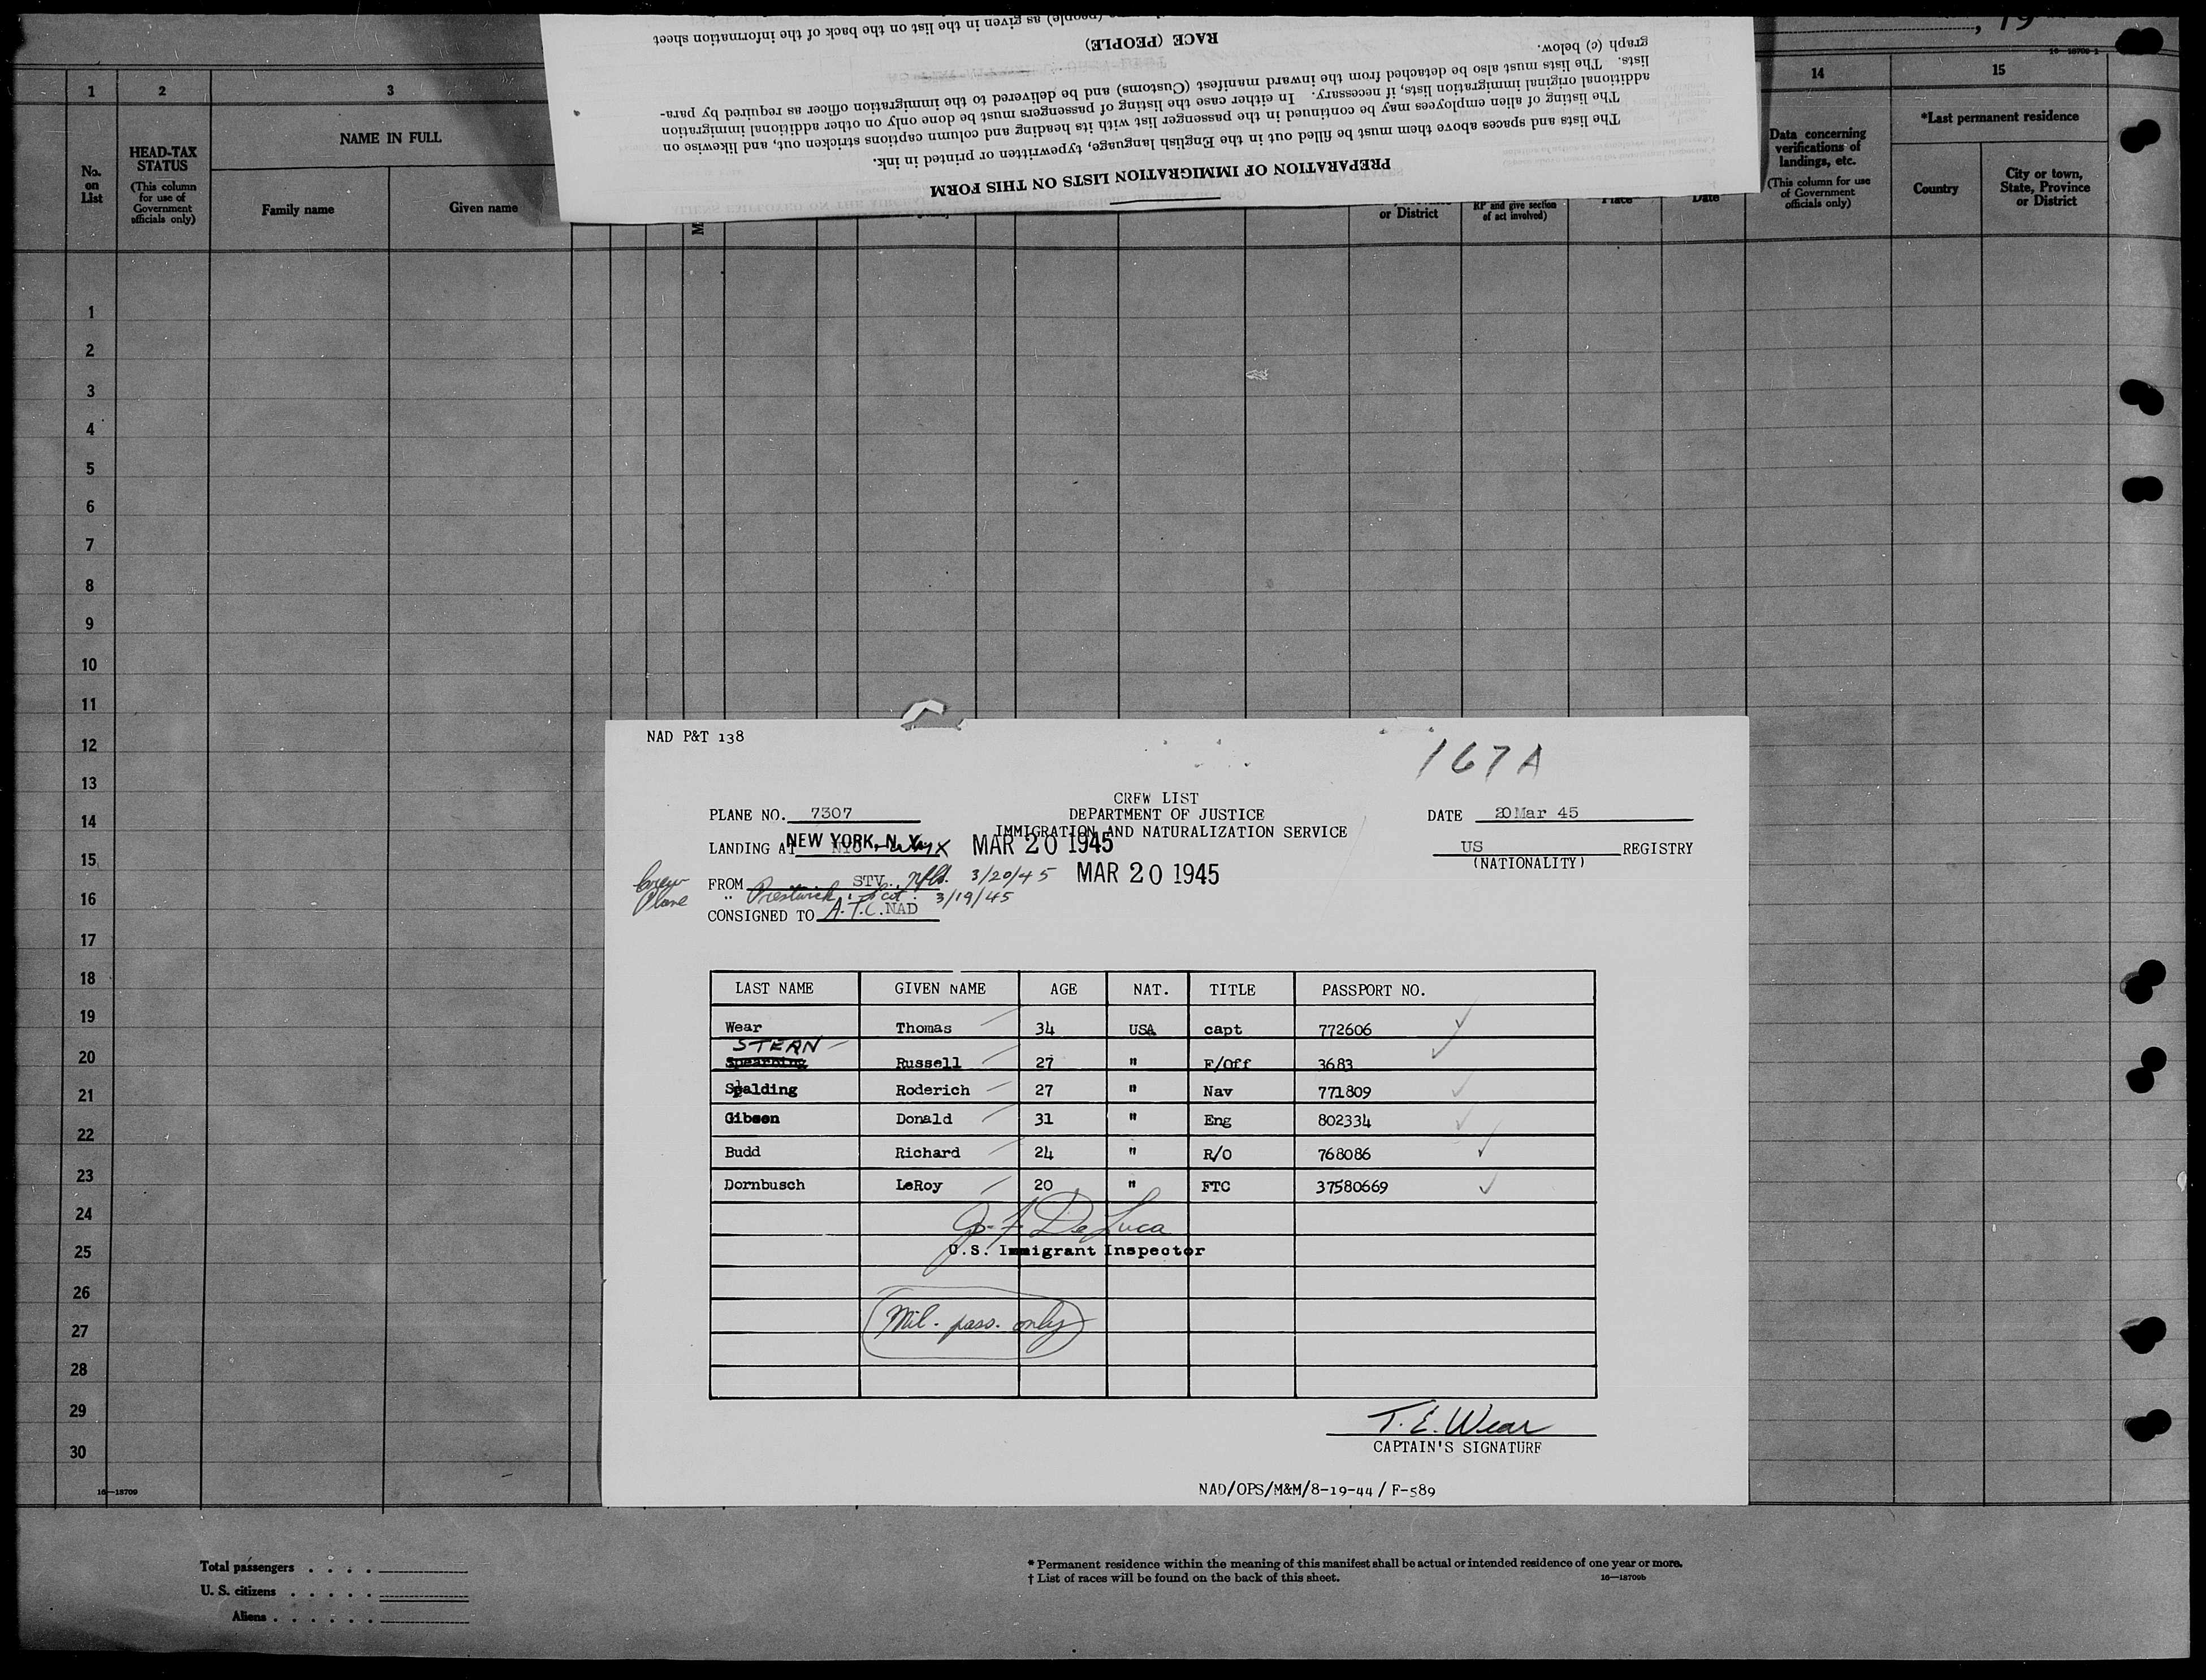 , 19
16—18709-1
PREPARATION OF IMMIGRATION LISTS ON THIS FORM
The lists and spaces above them must be filled out in the English language, typewritten or printed in ink.
The listing of alien employees may be continued in the passenger list with its heading and column captions stricken out, and likewise on
additional original immigration lists, if necessary. In either case the listing of passengers must be done only on other additional immigration
lists. The lists must also be detached from the inward manifest (Customs) and be delivered to the immigration officer as required by para-
graph (c) below.
RACE (PEOPLE)
(people) as given in the list on the back of the information sheet
1 2 3 14 15
No. on List
HEAD-TAX STATUS
(This column for use of Government officials only)
NAME IN FULL
Family name Given name
or District
RP and give section of act involved)
Place Date
Data concerning verifications of landings, etc.
(This column for use of Government officials only)
*Last permanent residence
Country
City or town, State, Province or District
1
2
3
4
5
6
7
8
9
10
11
12
13
14
15
16
17
18
19
20
21
22
23
24
25
26
27
28
29
30
16—18709
NAD P&T 138
167A
CREW LIST
PLANE NO. 7307 DEPARTMENT OF JUSTICE DATE 20 Mar 45
IMMIGRATION AND NATURALIZATION SERVICE
LANDING AT NEW YORK, N.Y. MAR 20 1945 US REGISTRY
(NATIONALITY)
FROM STV., Nfld. 3/20/45 MAR 20 1945
Crew Plane
" Prestwick, Scot. 3/19/45
CONSIGNED TO A.T.C. NAD
LAST NAME GIVEN NAME AGE NAT. TITLE PASSPORT NO.
Wear Thomas 34 USA capt 772606
STERN
Spearning Russell 27 " F/Off 3683
Spalding Roderich 27 " Nav 771809
Gibson Donald 31 " Eng 802334
Budd Richard 24 " R/O 768086
Dornbusch LeRoy 20 " FTC 37580669
Jo. F. DeLuca
U.S. Immigrant Inspector
Mil. pass. only
T. E. Wear
CAPTAIN'S SIGNATURE
NAD/OPS/M&M/8-19-44 / F-589
Total passengers . . . .
U. S. citizens . . . . .
Aliens . . . . . .
* Permanent residence within the meaning of this manifest shall be actual or intended residence of one year or more.
† List of races will be found on the back of this sheet.
16—18709b